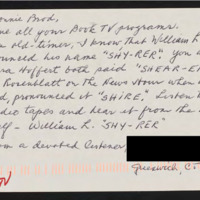 onnie Brod,
e all your Book TV programs.
n old-timer, I know that William L
ounced his name "SHY-RER". You a
ra Hoffert both said "SHEAR-E
Rosenblatt on the News Hour when
ed, pronounced it "SHIRE." Listen t
dio tapes and hear it from the
elf - William L. "SHY-RER"
om a devoted listener
Greenwich, CT